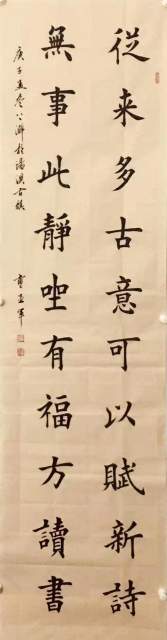 從来多古意可以賦新詩
無事此靜坐有福方讀書
庚子孟冬